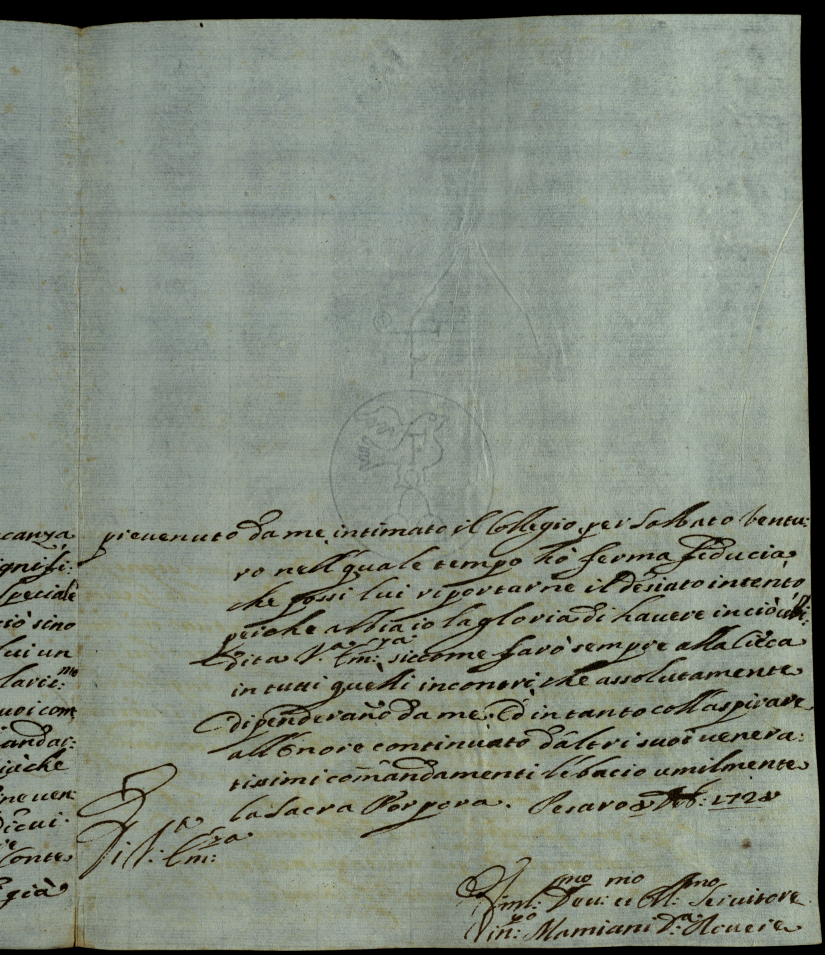 canza
ignifi:
speciale
ciò sino
lui un
larit:mo
uoi com
andar:
già che
ne uen
di cui
Conte
già
preuenuto da me, intimato il Collegio per Sabbato ventu:
ro nell' quale tempo hò ferma fiducia
che possi lui riportarne il desiato intento
perche abbia io la gloria di hauere in ciò ubbi:
dita V.ra Em:za siccome farò sempre alla cieca
in tutti quelli incontri che assolutamente
dipenderaño da me. Ed in tanto coll'aspirare
all'onore continuato d'altri suoi venera:
tissimi comãndamenti l'ebacio umilmente
la Sacra Porpora. Pesaro Feb: 1728
Di V.ra Em:za
Vmil:mo Deu:mo et Obl:mo Seruitore
Mamiani D:a Rouere